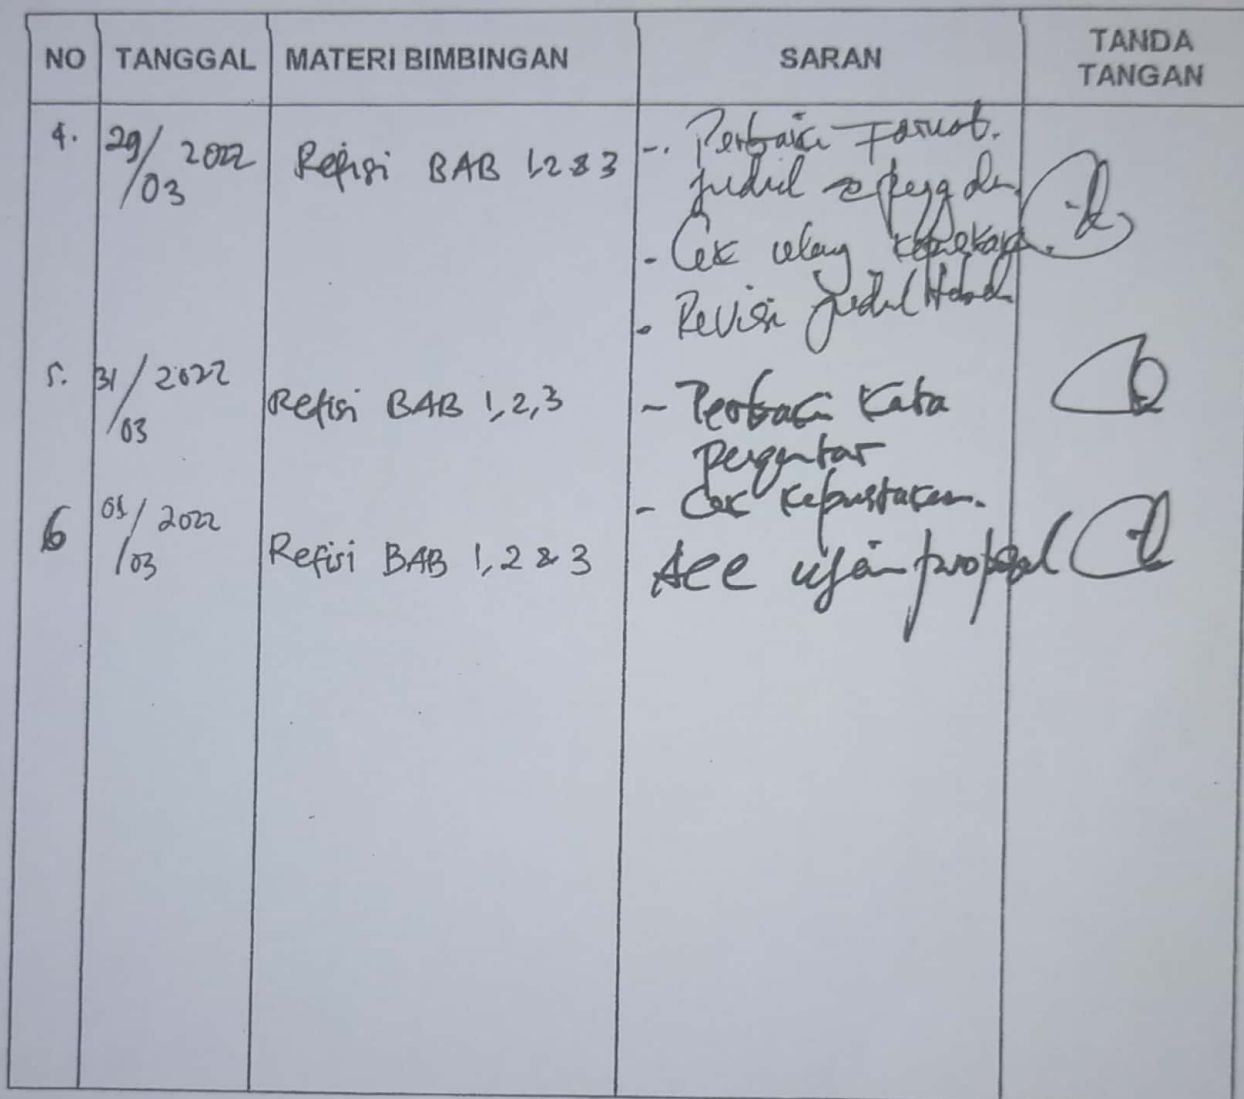 NO TANGGAL MATERI BIMBINGAN SARAN TANDA TANGAN
4. 29/03 2022 Refisi BAB 1,2 & 3 -. Perbaiki Format.
judul
- Cek ulang
- Revisi judul
5. 31/03 2022 Refisi BAB 1,2,3 - Perbaiki Kata
pengantar
- Cek Kepustakaan.
6 01/03 2022 Refisi BAB 1,2 & 3 Acc ujian proposal